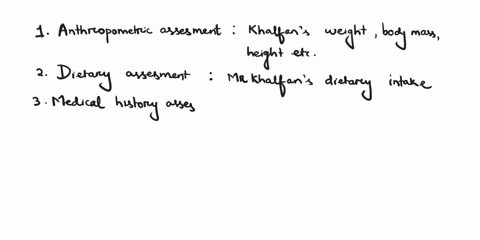 1. Anthropometric assesment : Khalfan's weight, body mass,
height etc.
2. Dietary assesment : Mr Khalfan's dietary intake
3. Medical history asses